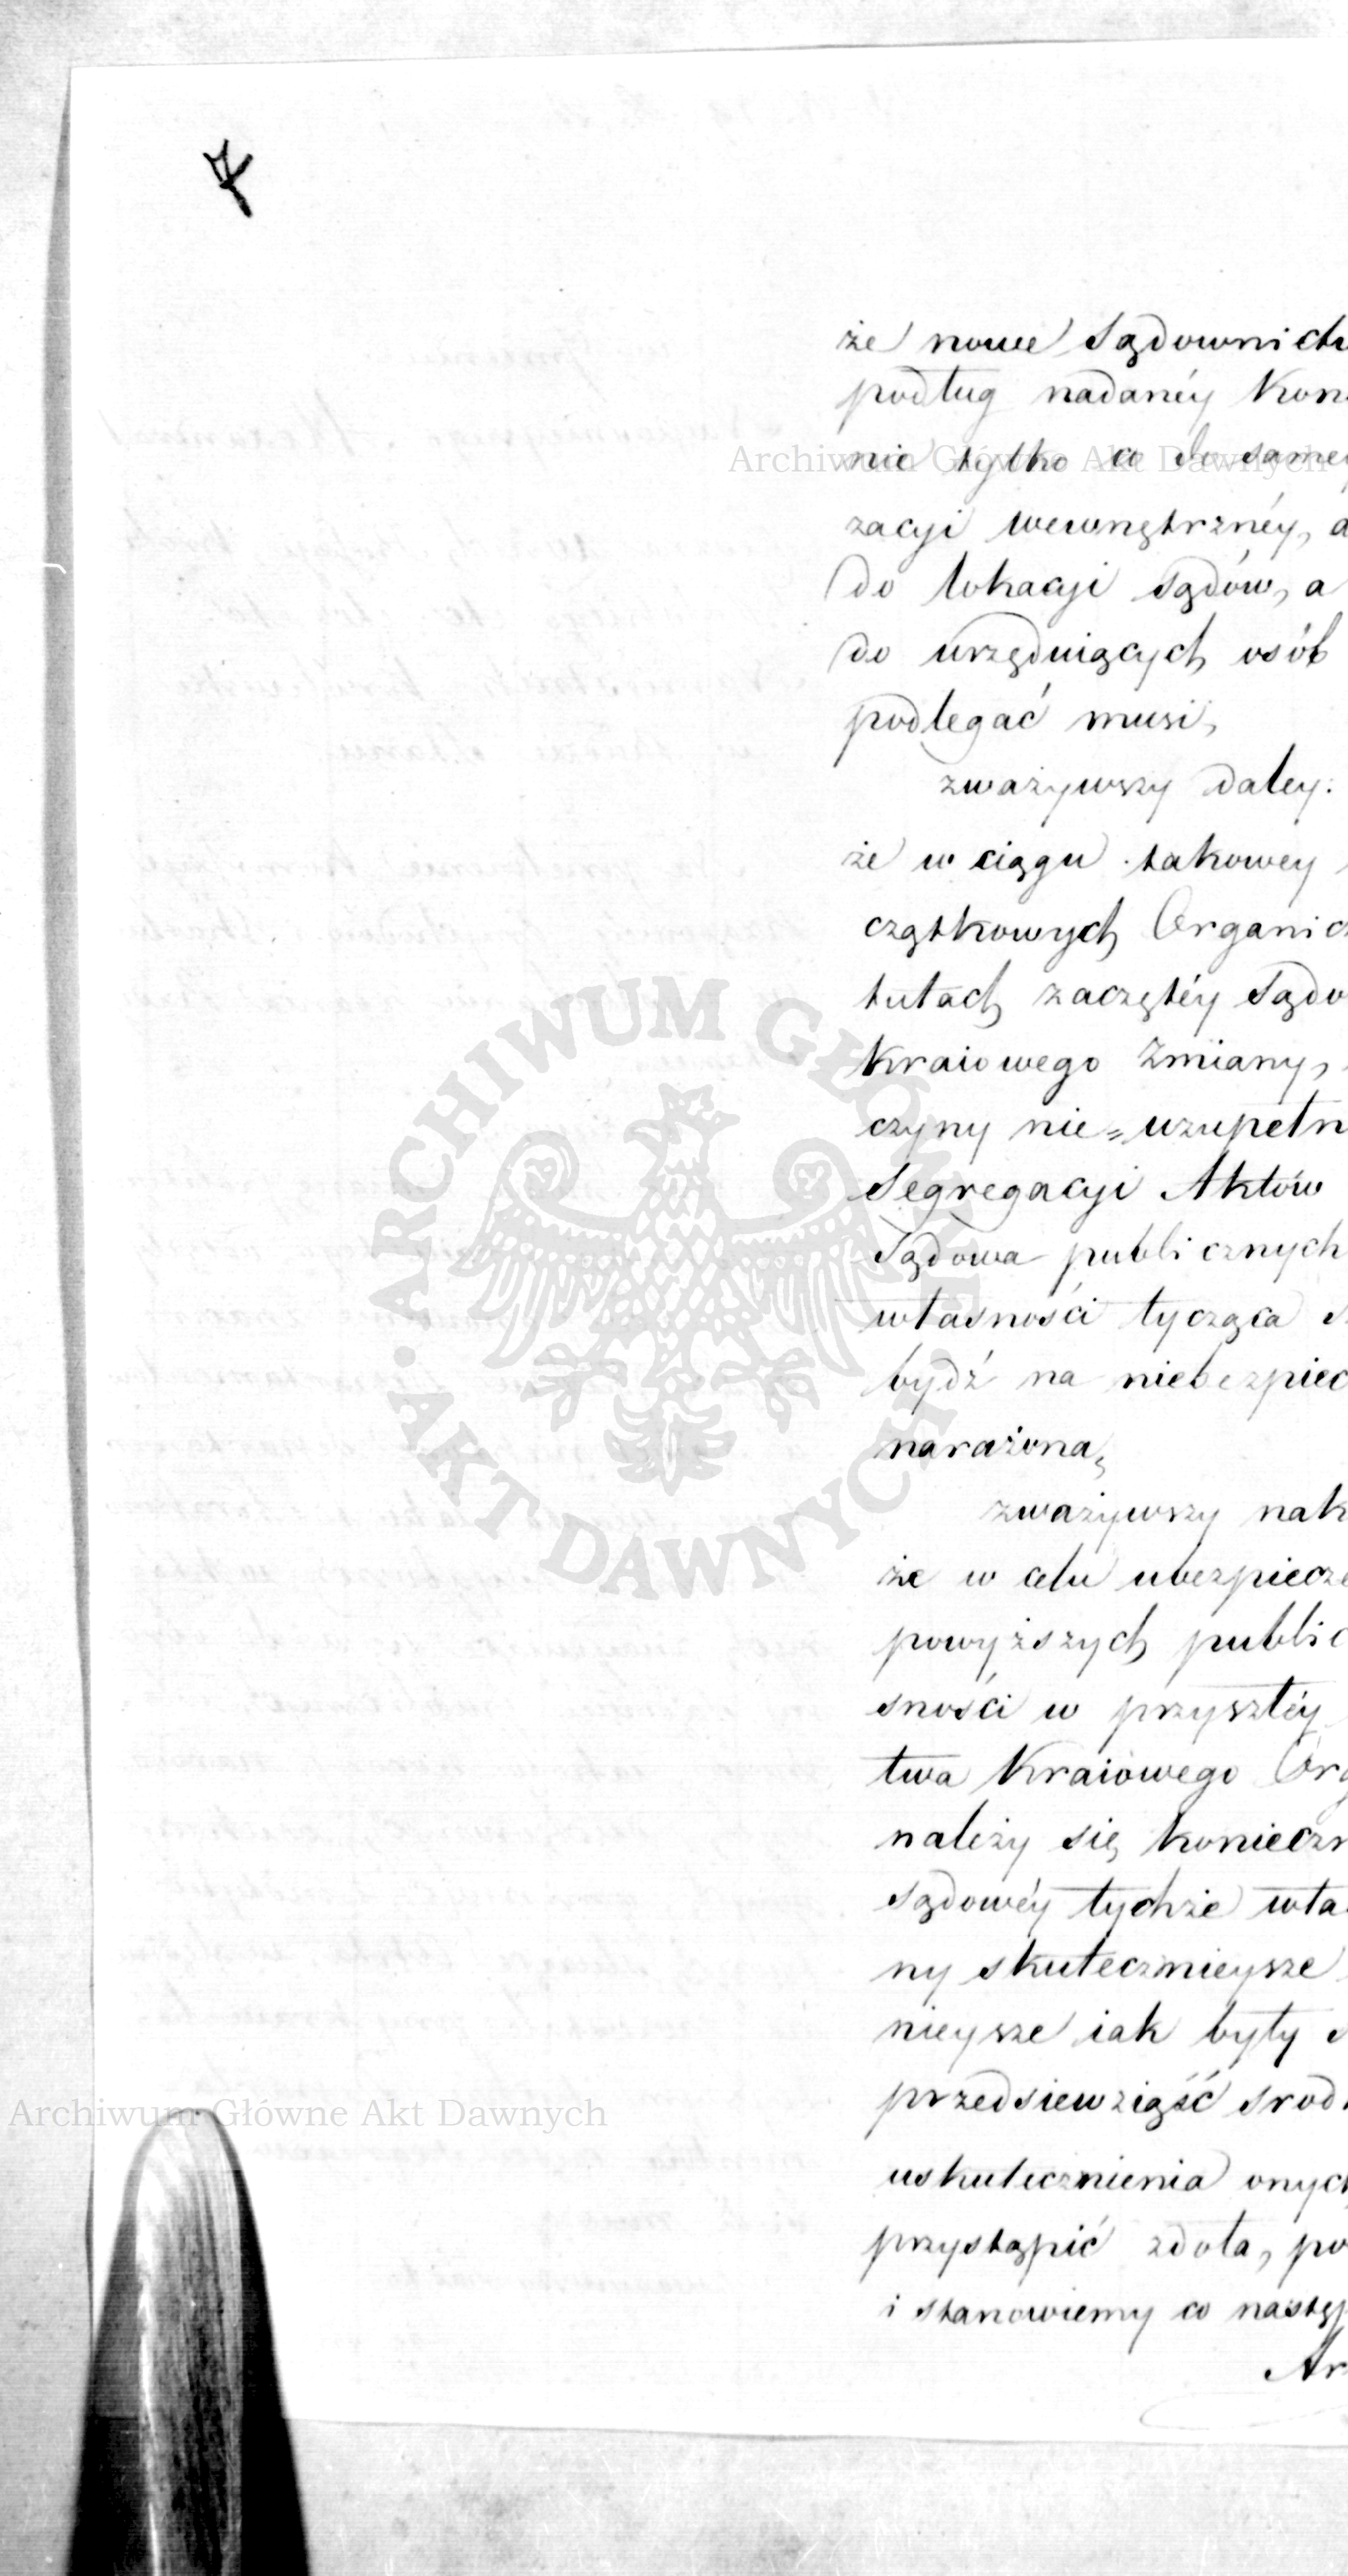 7
że nowe Sądownictw
podług nadanéy Kons
nie tylko co do samey
zacyi wewnętrznéy, a
do lokacyi sądów, a
do urzęduiących osób
podlegać musi,
zważywszy daley:
że w ciągu takowey
cząstkowych Organicz
tutach zaczętéy Sądo
Kraiowego Zmiany,
czyny nie=uzupełn
Segregacyi Aktów
Sądowa publicznych
własności tycząca s
bydź na niebezpiec
narażona,
zważywszy nak
że w celu ubezpiecze
powyższych public
sności w przyszłéy
twa Kraiowego Org
należy się konieczn
sądowéy tychże wła
ny skutecznieysze
nieysze iak były s
przedsiewziąść srod
uskutecznienia onych
przystąpić zdoła, po
i stanowiemy co następ
Ar
Archiwum Główne Akt Dawnych
ARCHIWUM GŁÓWNE
AKT DAWNYCH
Archiwum Główne Akt Dawnych